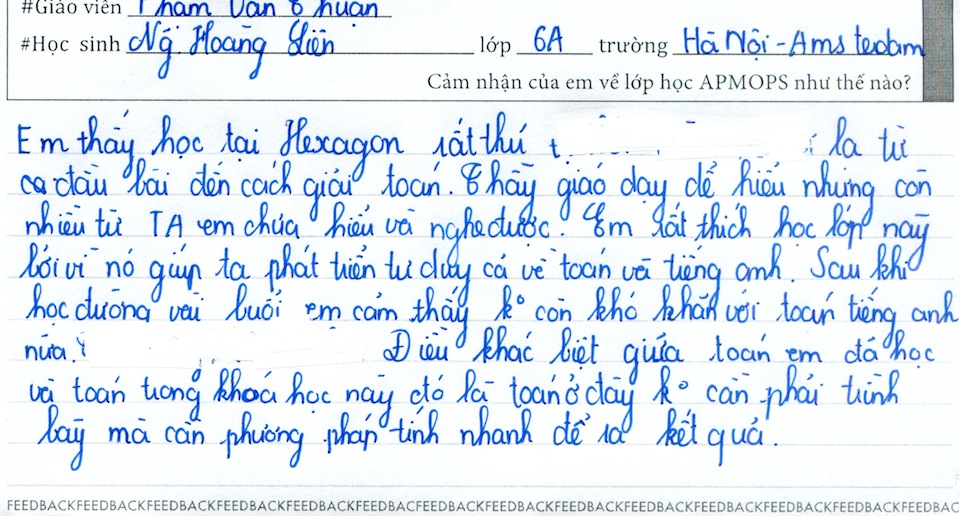 #Giáo viên Phạm Văn Thuận
#Học sinh Ng̃ Hoàng Liên lớp 6A trường Hà Nội - Amstecdam
Cảm nhận của em về lớp học APMOPS như thế nào?
Em thấy học tại Hexagon rất thú lạ từ
cả đầu bài đến cách giải toán. Thầy giáo dạy dễ hiểu nhưng còn
nhiều từ TA em chưa hiểu và nghe được. Em rất thích học lớp này
bởi vì nó giúp ta phát triển tư duy cả về toán và tiếng anh. Sau khi
học được vài buổi em cảm thấy k° còn khó khăn với toán tiếng anh
nữa. Điều khác biệt giữa toán em đã học
và toán trong khoá học này đó là toán ở đây k° cần phải trình
bày mà cần phương pháp tính nhanh để ra kết quả.
FEEDBACKFEEDBACKFEEDBACKFEEDBACKFEEDBACKFEEDBACFEEDBACKFEEDBACKFEEDBACKFEEDBACKFEEDBACKFEEDBACKFEEDBAC